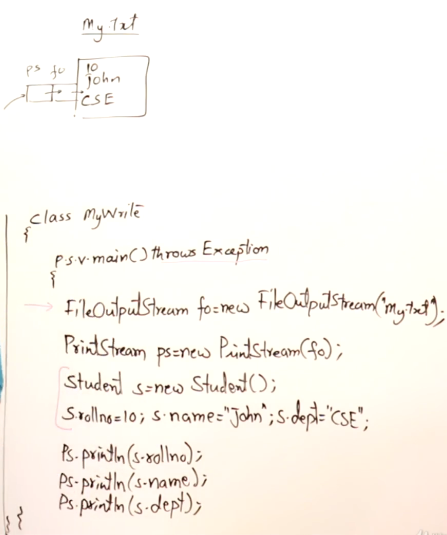 My.txt
ps fo
10
john
CSE
class MyWrite
{
p.s.v.main() throws Exception
{
FileOutputStream fo=new FileOutputStream("My.txt");
PrintStream ps=new PrintStream(fo);
Student s=new Student();
s.rollno=10; s.name="John"; s.dept="CSE";
Ps.println(s.rollno);
Ps.println(s.name);
Ps.println(s.dept);
}}